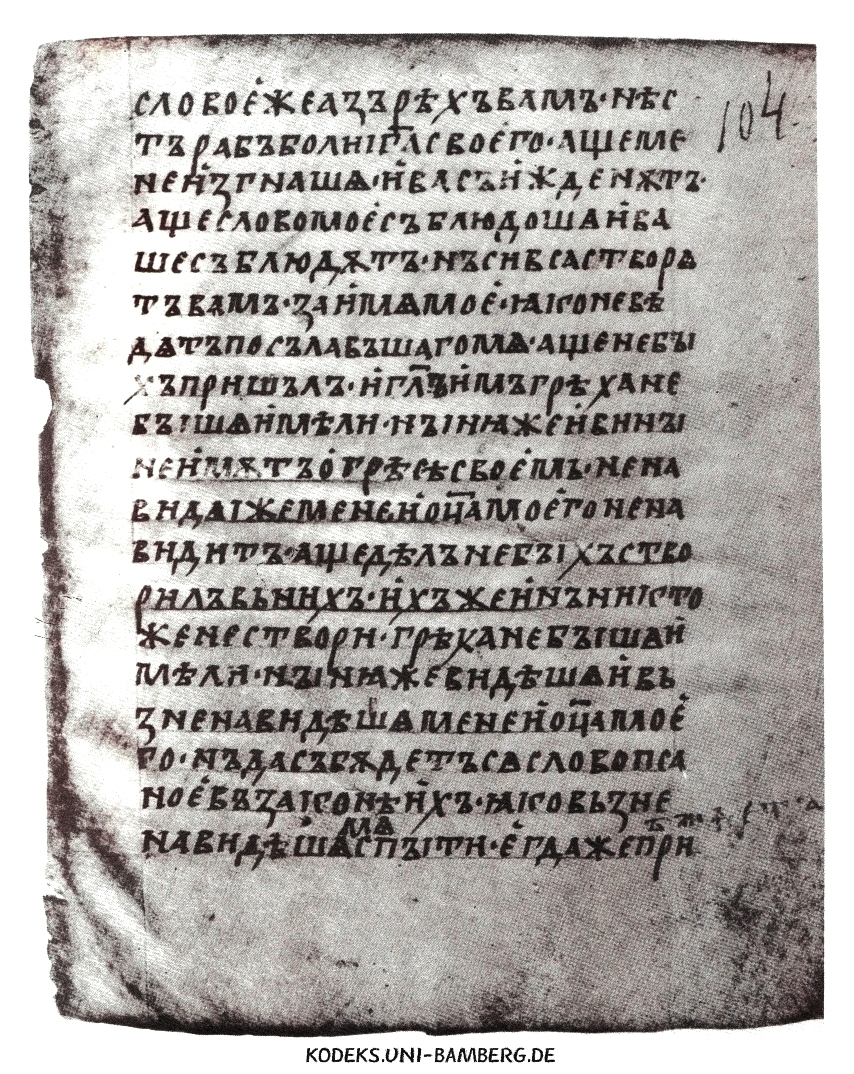 слово е҅же азъ рѣхъ вамъ· нѣс
тъ рабъ болиі г҃а своего· аще ме
не и҅згнашѧ· и҅ васъ и҅жденѫтъ·
аще слово мое҅ съблюдошѧ и҅ ва
ше съблюдѫтъ· нъ си вса створѧ
тъ вамъ· за и҅мѧ мое҅· ꙗко не вѣ
дѧтъ посълавъшаго мѧ· аще не бы
хъ пришълъ· и҅ гл҃ъ и҅мъ грѣха не
бъішѧ и҅мѣли· нъінꙗ же и҅ винъі
не и҅мѫтъ о҅ грѣсѣ своемь· нена
видѧі же мене и҅ оц҃а моего нена
видитъ· аще дѣлъ не бъіхъ ство
рилъ вь нихъ· и҅хъже и҅нъ никто
же не створи· грѣха не бъішѧ и҅
мѣли· нъінꙗ же видѣшѧ и҅ вь
зненавидѣшѧ мене и҅ оц҃а мое҅
го· нъ да събѫдетъ сѧ слово пса
ное҅ въ законѣ и҅хъ· ꙗко вьзне
навидѣшѧ мѧ спъіти· е҅гда же при
104
KODEKS.UNI-BAMBERG.DE